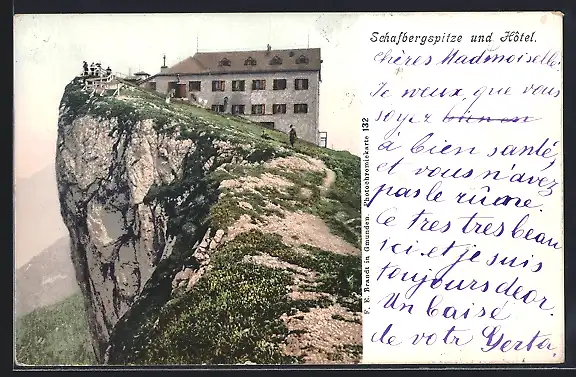 Schafbergspitze und Hôtel.
chères Madmoiselle!
Je veux que vous
soyer bien en
à bien santé
et vous n'avez
pas le rûme.
Ce tres tres beau
ici et je suis
toujours deor.
Un baisé
de votr Gerta.
F. E. Brandt in Gmunden. Photochromiekarte 132